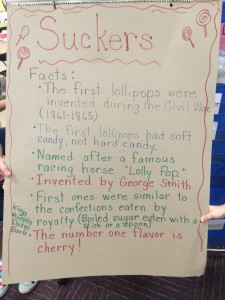 Suckers
Facts:
• The first lollipops were
invented during the Civil War
(1861-1865)
• The first lollipops had soft
candy, not hard candy.
• Named after a famous
racing horse "Lolly Pop."
• Invented by George Smith
• First ones were similar to
the confections eaten by
royalty (Boiled sugar eaten with a
stick or a spoon)
Kings
Queens
Dukes
Earls
• The number one flavor is
cherry!